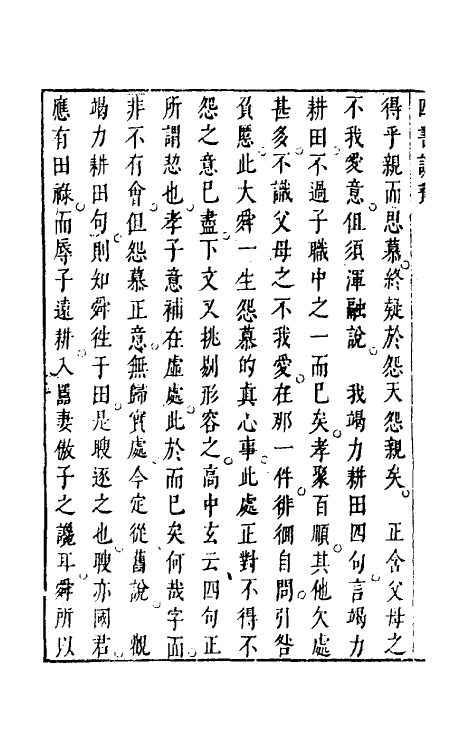 得乎親而思慕終疑於怨天怨親矣　正含父母之
不我愛意但須渾融說　我竭力耕田四句言竭力
耕田不過子職中之一而巳矣孝聚百順其他欠處
甚多不識父母之不我愛在那一件徘徊自問引咎
負慝此大舜一生怨慕的真心事此處正對不得不
怨之意巳盡下文又挑剔形容之高中玄云四句正
所謂恝也孝子意補在虛處此於而巳矣何哉字面
非不有會但怨慕正意無歸實處今定從舊說　觀
竭力耕田句則知舜徃于田是瞍逐之也瞍亦國君
應有田祿而辱子遠耕入嚚妻傲子之讒耳舜所以